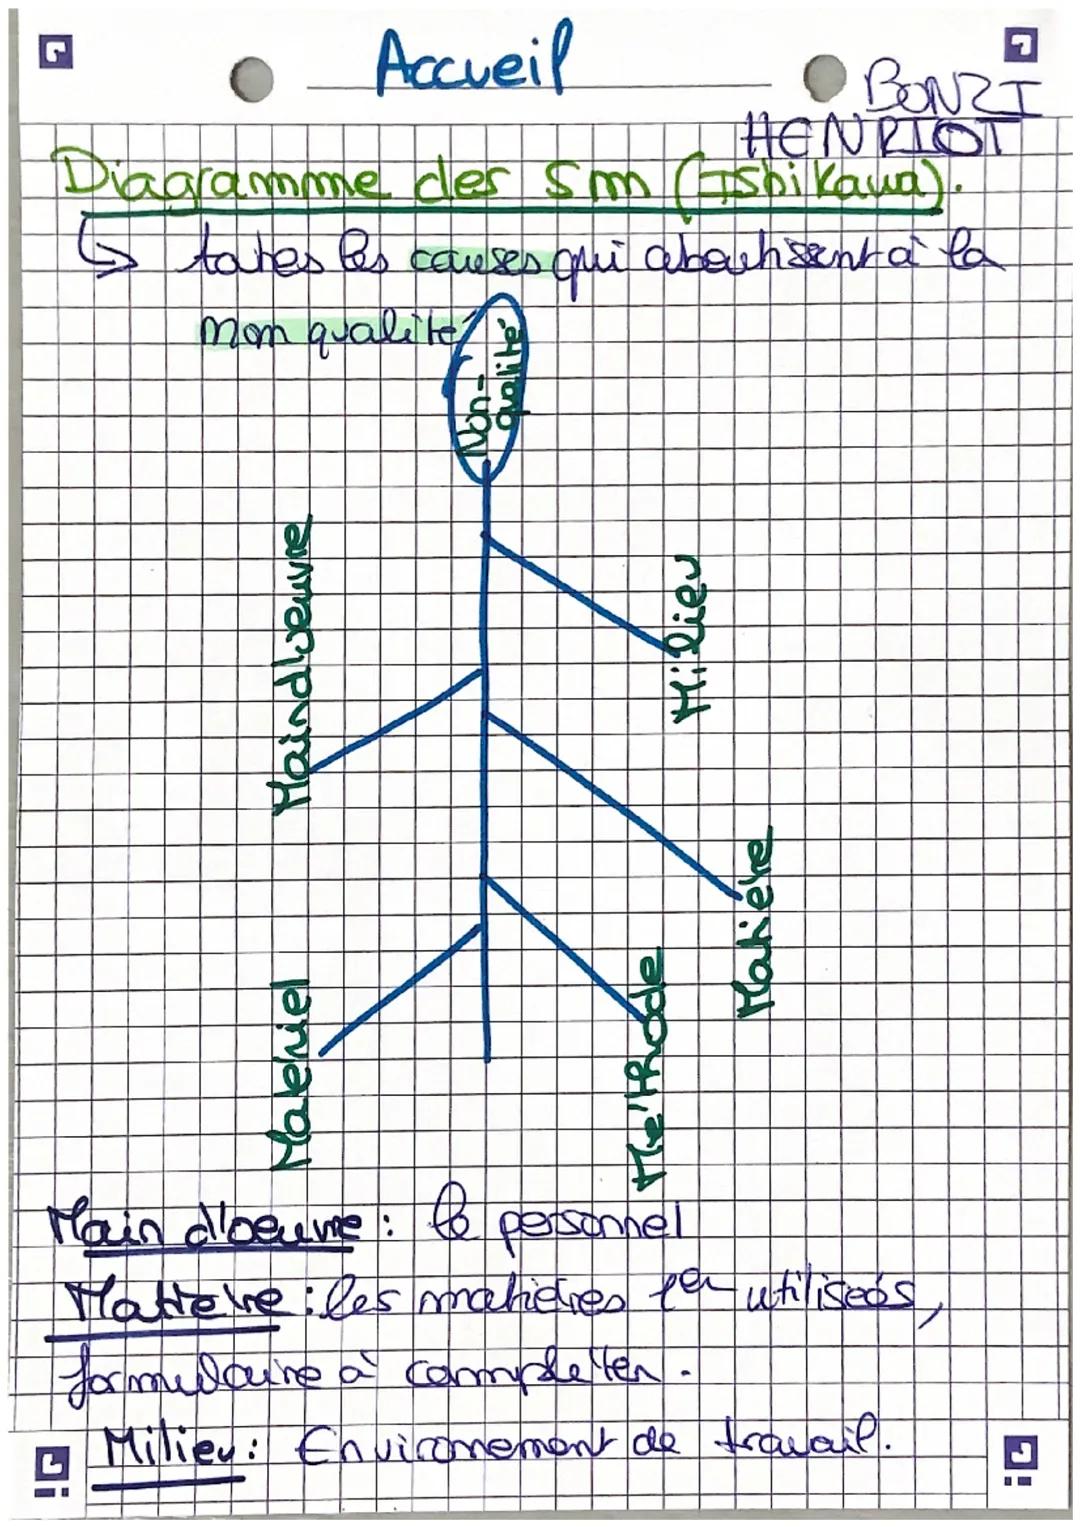 Accueil
BONZI
HENRIOT
Diagramme des 5m (Ishikawa).
↳ toutes les causes qui aboutissent à la
non qualité
Non-
qualité
Maind'oeuvre
Milieu
Matière
Matériel
Mé'thode
Main d'oeuvre : le personnel
Matière : les matières 1er utilisées,
formulaire à compléter.
Milieu : Environnement de travail.